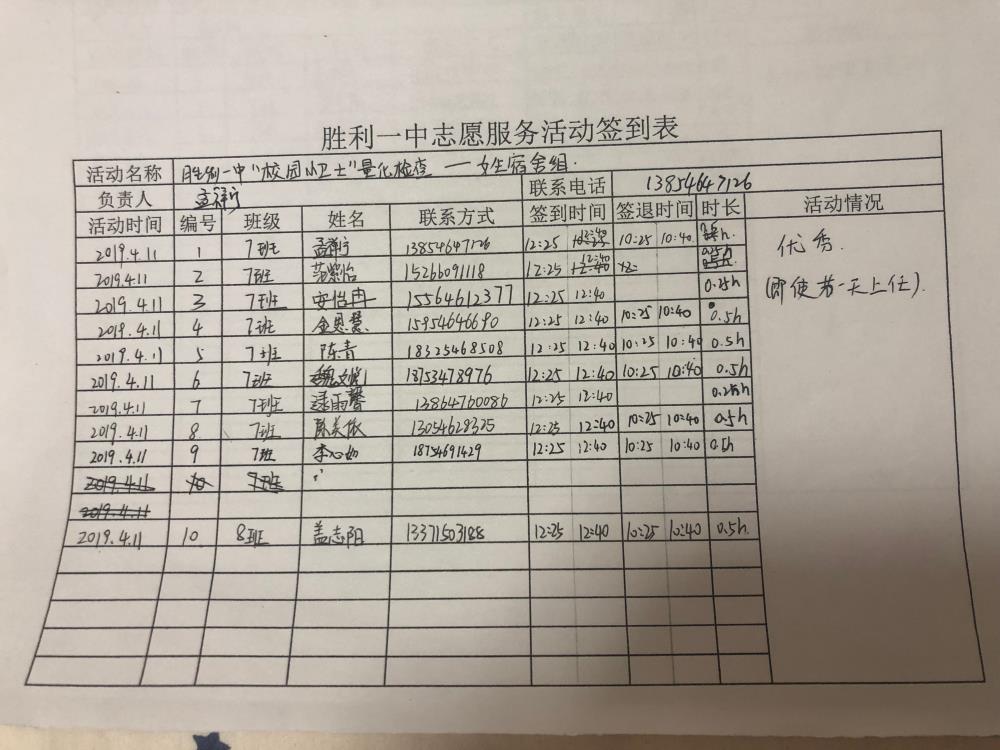 胜利一中志愿服务活动签到表
活动名称 胜利一中"校园小卫士"量化检查 — 女生宿舍组.
负责人 孟祥宁 联系电话 13854647126
活动时间 编号 班级 姓名 联系方式 签到时间 签退时间 时长 活动情况
2019.4.11 1 7班 孟祥宁 13854647126 12:25 12:40 10:25 10:40
2019.4.11 2 7班 15266091118 12:25 12:40 0.25h
优秀.
2019.4.11 3 7班 安怡冉 15564612377 12:25 12:40 0.25h
(即使第一天上任).
2019.4.11 4 7班 金恩慧 15954646690 12:25 12:40 10:25 10:40 0.5h
2019.4.11 5 7班 陈青 18325468508 12:25 12:40 10:25 10:40 0.5h
2019.4.11 6 7班 18753478976 12:25 12:40 10:25 10:40 0.5h
2019.4.11 7 7班 逯雨馨 13864760086 12:25 12:40 0.25h
2019.4.11 8 7班 陈美依 13054629325 12:25 12:40 10:25 10:40 0.5h
2019.4.11 9 7班 李心如 18754691429 12:25 12:40 10:25 10:40 0.5h
2019.4.11 10 7班
2019.4.11
2019.4.11 10 8班 盖志阳 13371503188 12:25 12:40 10:25 10:40 0.5h